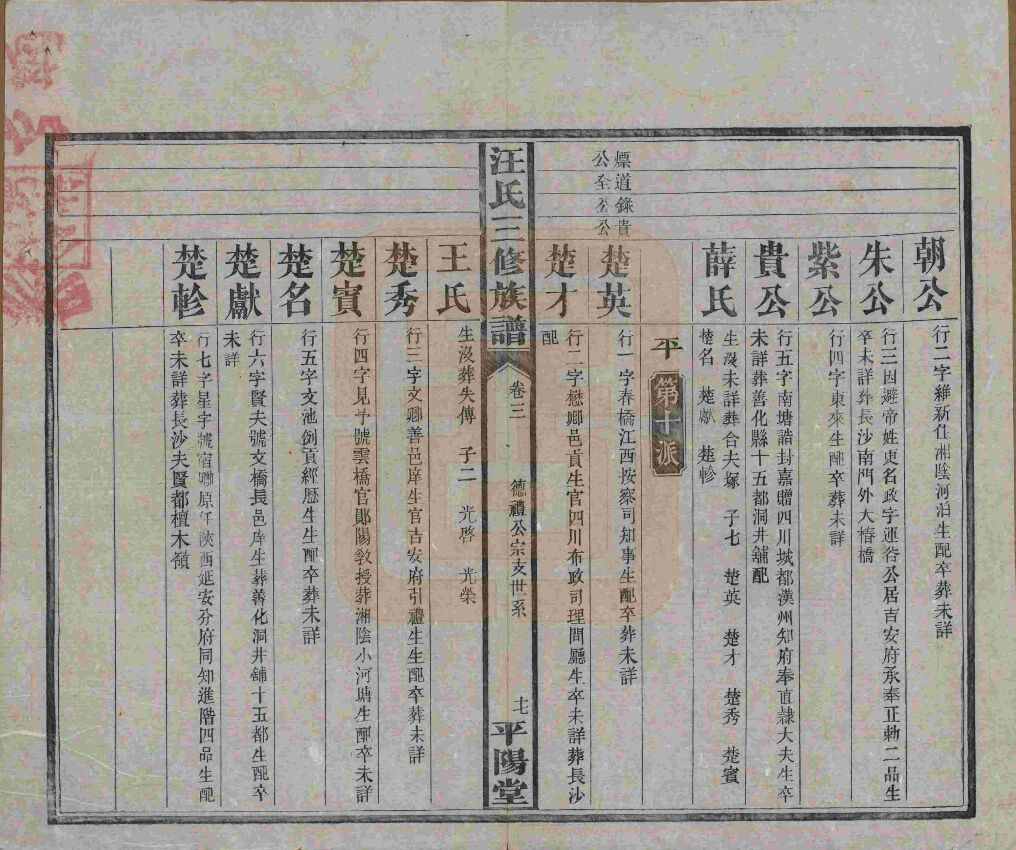 朝公
行二字維新住湘陰河泊生配卒葬未詳
朱公
行三因避帝姓東名政字運谷公居吉安府承奉正勅二品生
卒未詳葬長沙南門外大椿橋
紫公
行四字東來生配卒葬未詳
貴公
行五字南塘誥封嘉贈四川城都漢州知府奉直隷大夫生卒
未詳葬善化縣十五都洞井舖配
薛氏
生沒未詳葬合夫塚 子七 楚英 楚才 楚秀 楚賓
楚名 楚獻 楚軫
平 第十派
標道錄貴
公全公公
楚英
行一字春橋江西按察司知事生配卒葬未詳
楚才
行二字懋卿邑貢生官四川布政司理問廳生卒未詳葬長沙
配
汪氏三修族譜 卷三 德禮公宗支世系 十七 平陽堂
王氏
生沒葬失傳 子二 光啓 光榮
楚秀
行三字文卿善邑庠生官吉安府引禮生生配卒葬未詳
楚賓
行四字見平號雲橋官鄖陽教授葬湘陰小河塘生配卒未詳
楚名
行五字文池例貢經歷生生配卒葬未詳
楚獻
行六字賢夫號文橋長邑庠生葬善化洞井舖十五都生配卒
未詳
楚軫
行七字星宇號宿聯原任陝西延安分府同知進階四品生配
卒未詳葬長沙夫賢都檀木嶺